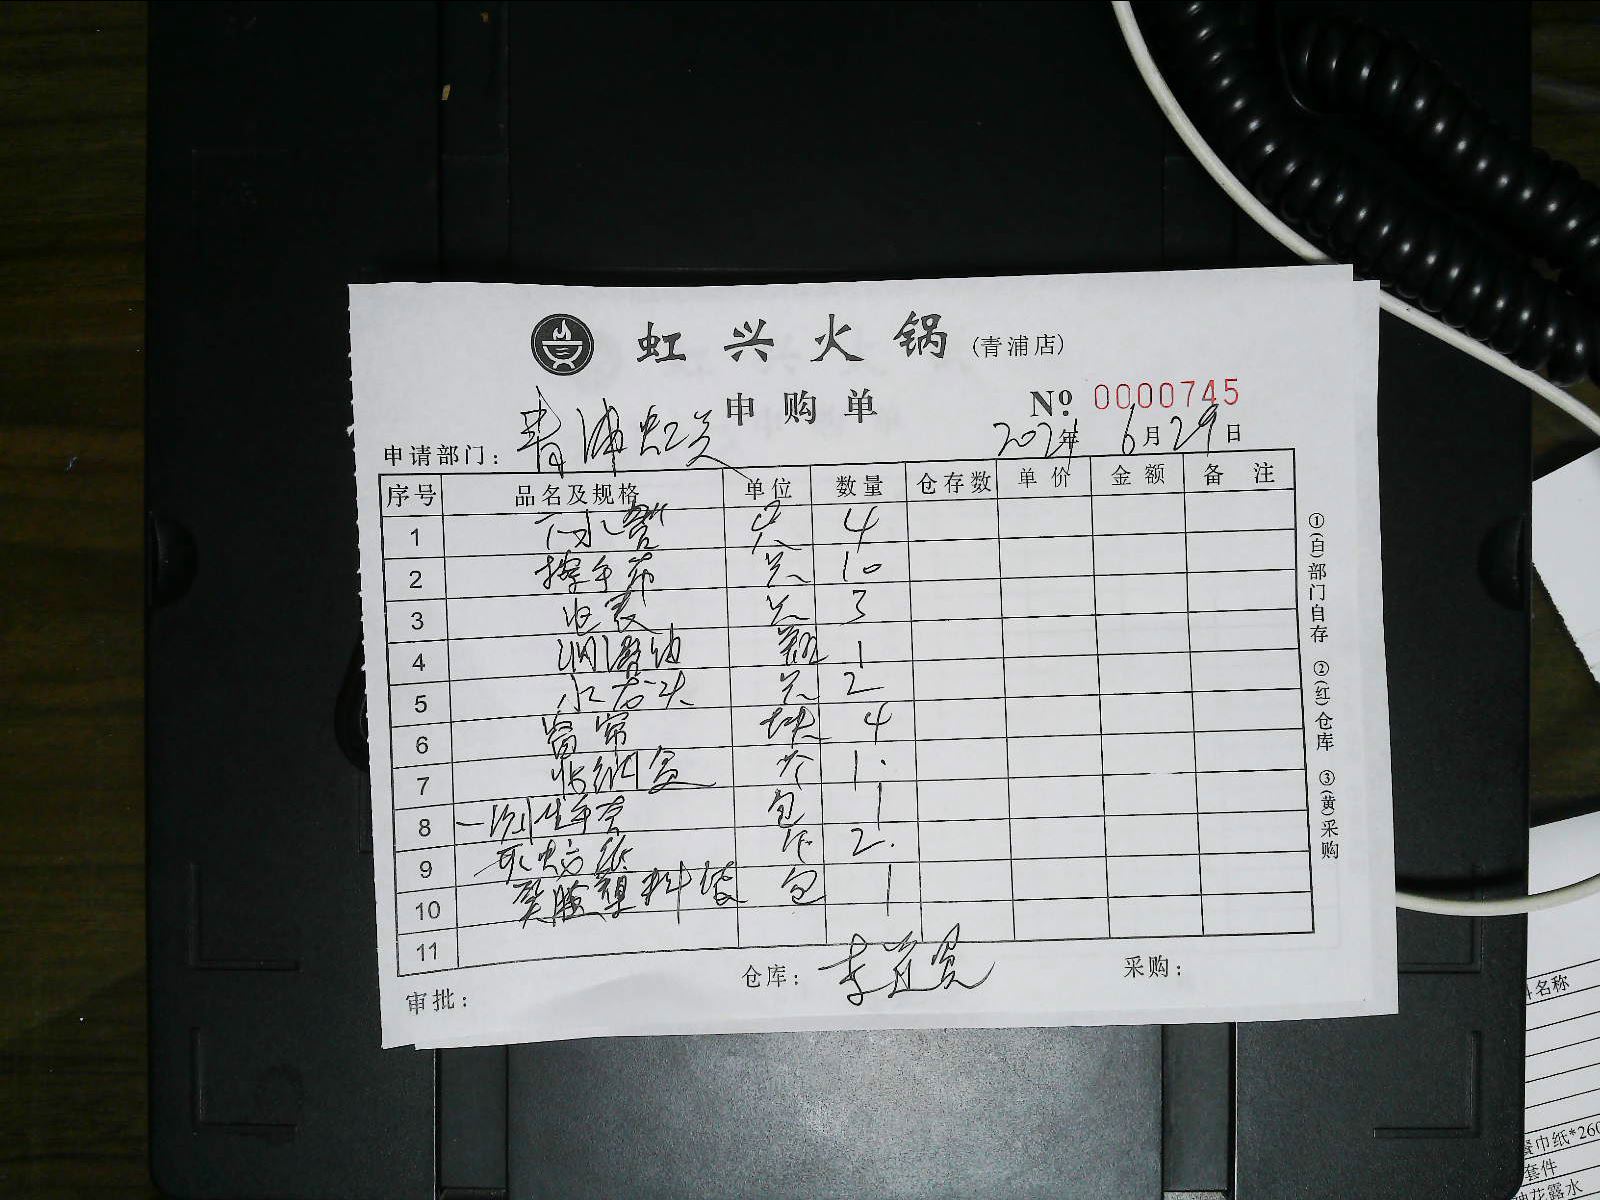 虹兴火锅(青浦店)
申购单
№ 0000745
申请部门: 青浦虹兴
2021年 6月29日
序号 品名及规格 单位 数量 仓存数 单价 金额 备注
1 下水管 只 4
2 擦手布 只 10
3 电表 只 3
4 润滑油 瓶 1
5 水龙头 只 2
6 窗帘 块 4
7 收纳盒 个 1.
8 一次性手套 包 1
9 2.
10 塑料袋 包 1
11
仓库:
采购:
审批:
①(白)部门自存 ②(红)仓库 ③(黄)采购
名称
巾纸*260
套件
花露水